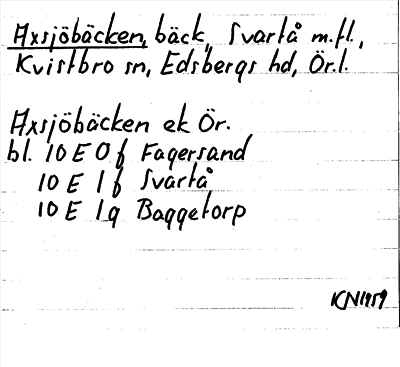 Axsjöbäcken, bäck, Svartå m.fl.,
Kvistbro sn, Edsbergs hd, Ör.l.
Axsjöbäcken ek Ör.
bl. 10 E 0 f Fagersand
10 E 1 f Svartå
10 E 1 g Baggetorp
KN 1959